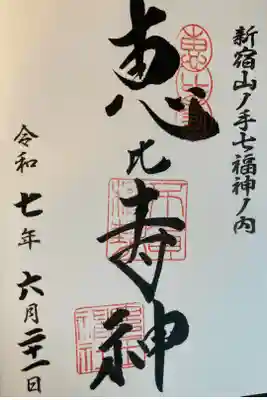 新宿山ノ手七福神ノ内
恵比寿神
令和七年六月二十一日